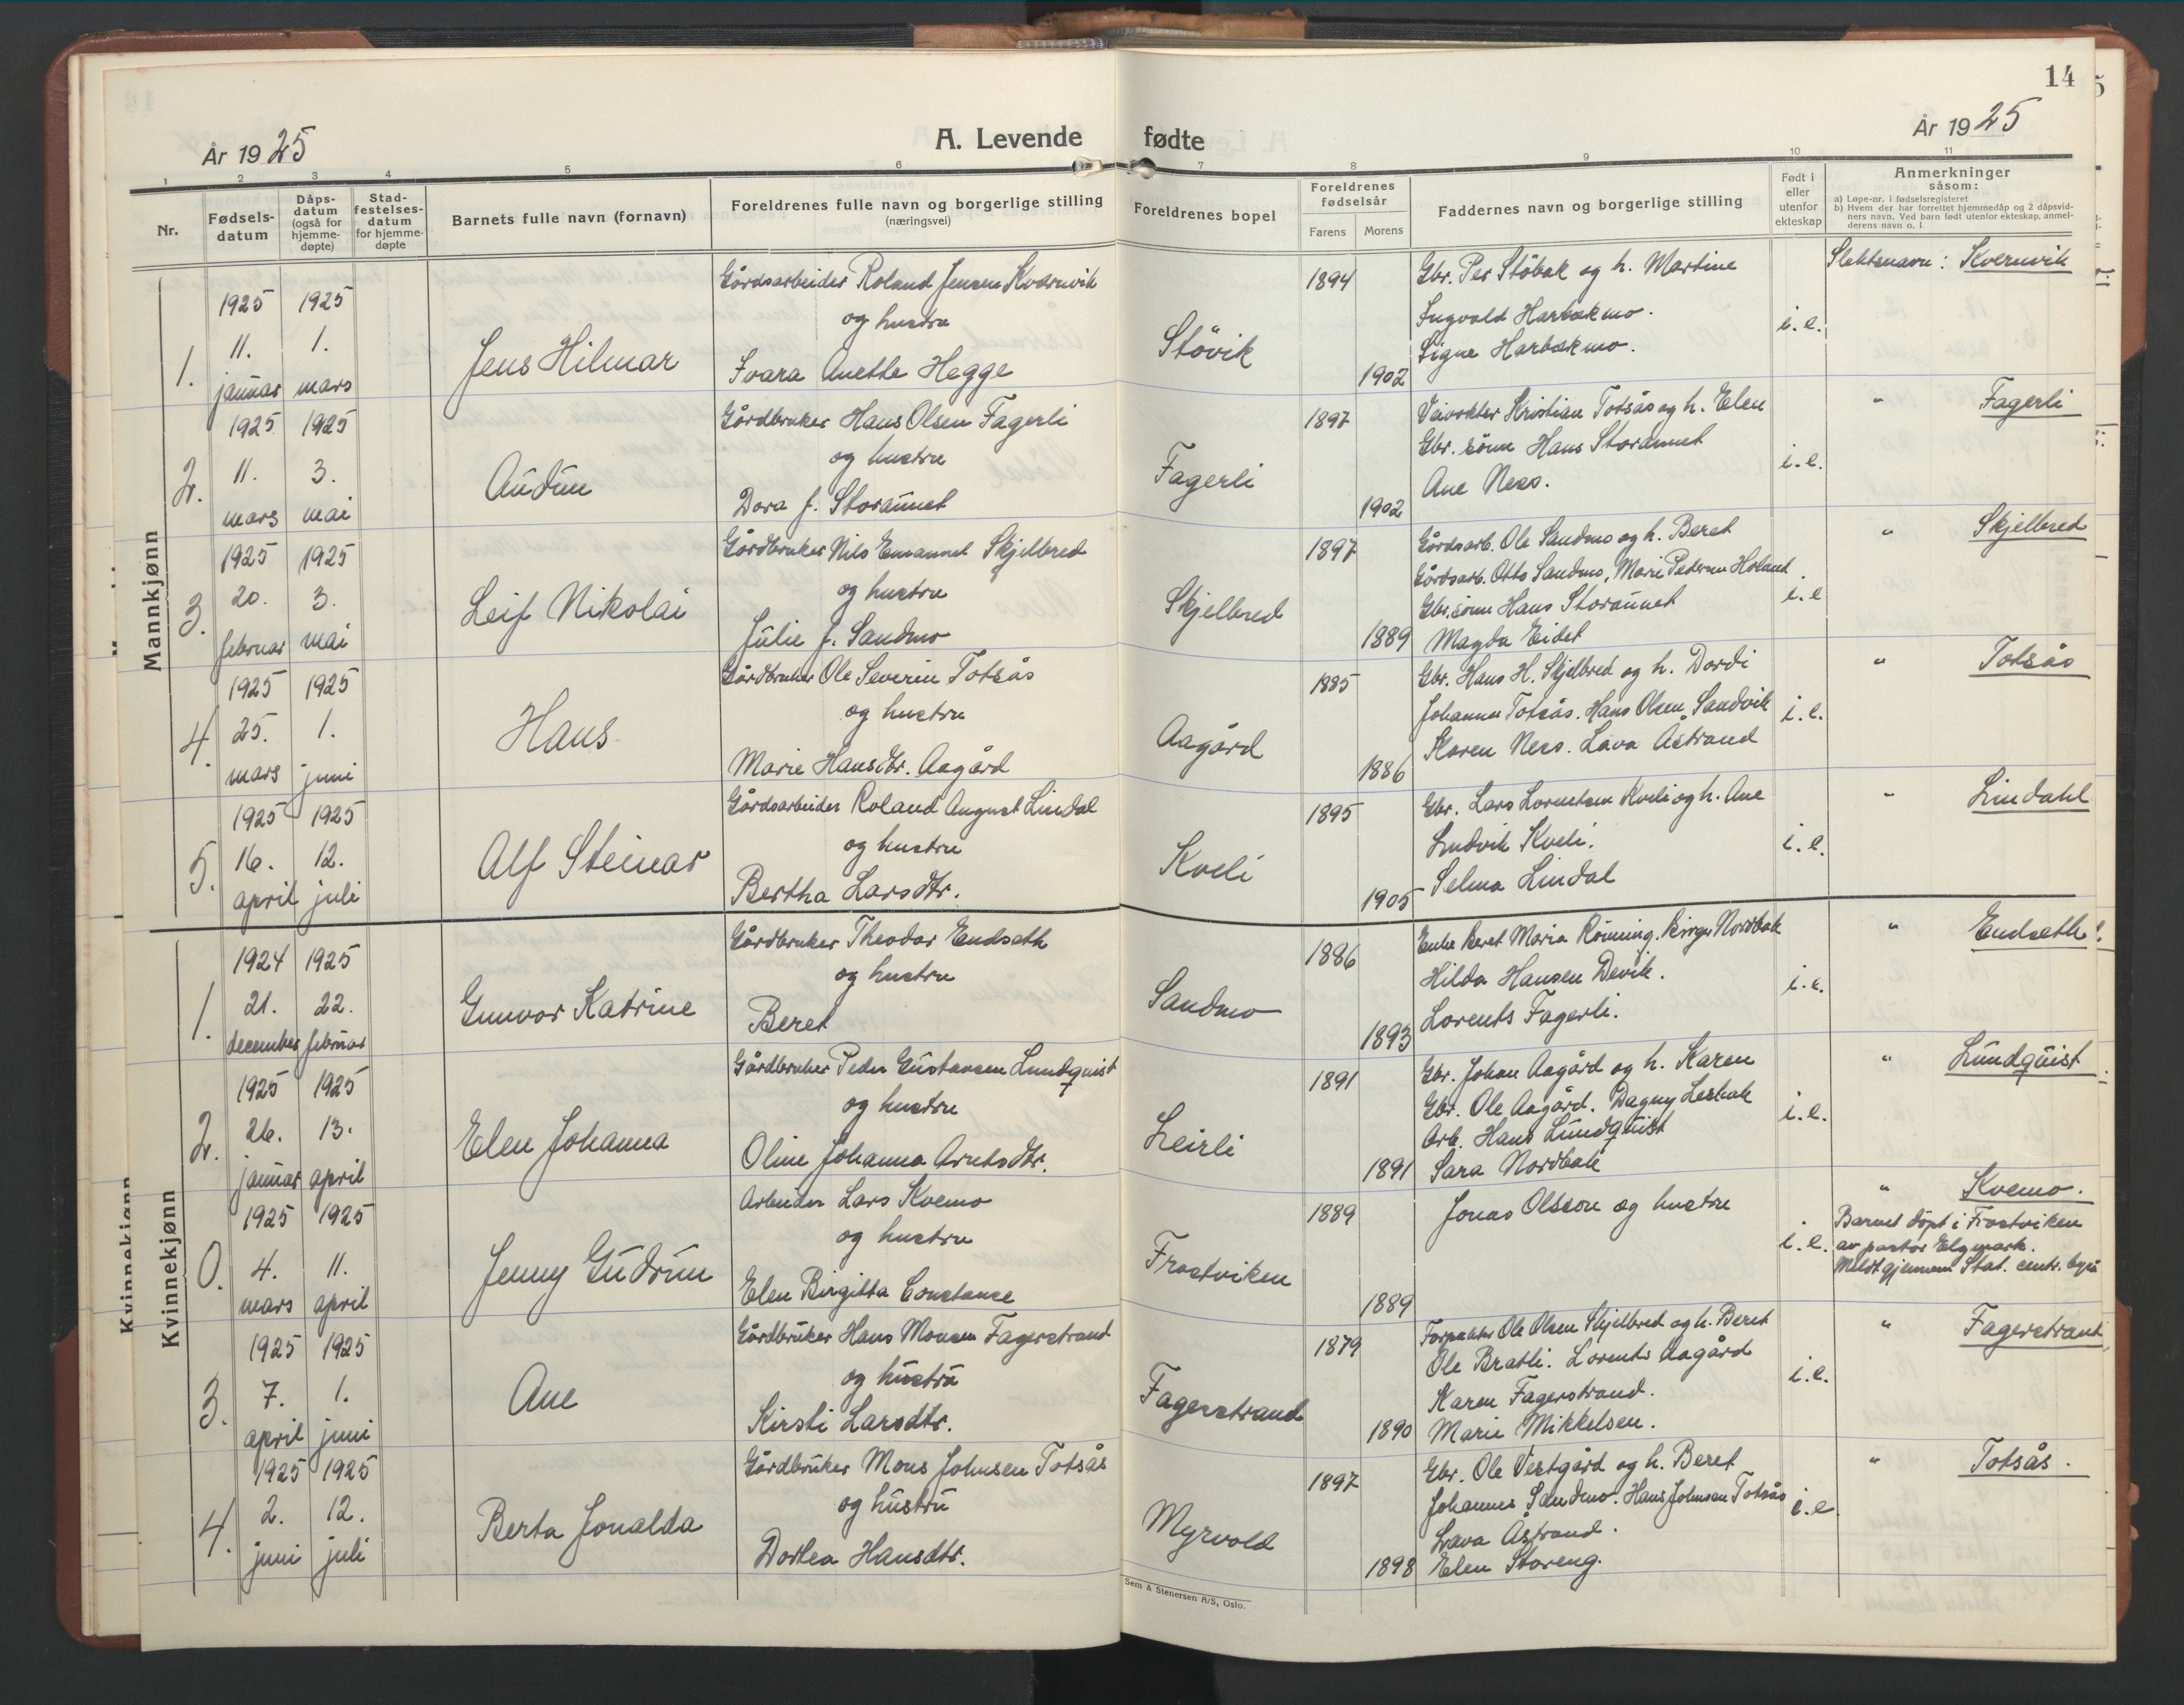 14
År 1925
A. Levende fødte
År 1925
1 2 3 4 5 6 7 8 9 10 11
Nr.
Fødsels-
datum
Dåps-
datum
(også for
hjemme-
døpte)
Stad-
festelses-
datum
for hjemme-
døpte
Barnets fulle navn (fornavn)
Foreldrenes fulle navn og borgerlige stilling
(næringsvei)
Foreldrenes bopel
Foreldrenes
fødselsår
Farens
Morens
Faddernes navn og borgerlige stilling
Født i
eller
utenfor
ekteskap
Anmerkninger
såsom:
a) Løpe-nr. i fødselsregisteret
b) Hvem der har forrettet hjemmedåp og 2 dåpsvid-
ners navn. Ved barn født utenfor ekteskap, anmel-
derens navn o. l.
Mannkjønn
1.
1925
11.
januar
1925
1.
mars
Jens Hilmar
Gårdsarbeider Roland Jensen Kvernvik
og hustru
Svara Anette Hegge
Støvik
1894
1902
Gbr. Per Støbak og h. Martine
Ingvald Harbakmo.
Signe Harbakmo.
i.e.
Slektsnavn: Kvernvik
2.
1925
11.
mars
1925
3.
mai
Audun
Gårdbruker Hans Olsen Fagerli
og hustru
Dora f. Staraunet
Fagerli
1897
1902
Veivokter Kristian Totsås og h. Elen
Gbr. sønn Hans Storaunet
Ane Ness.
i.e.
" Fagerli
3.
1925
20.
februar
1925
3.
mai
Leif Nikolai
Gårdbruker Nils Emanuel Skjelbred
og hustru
Julie f. Sandmo
Skjelbred
1897
1889
Gårdsarb. Ole Sandmo og h. Beret
Gårdsarb. Otto Sandmo, Mari Pedersen Holand
Gbr. sønn Hans Storaunet
Magda Eidet
i.e
" Skjelbred
4.
1925
25.
mars
1925
1.
juni
Hans
Gårdbruker Ole Severin Totsås
og hustru
Marie Hansdtr. Aagård
Aagård
1885
1886
Gbr. Hans H. Skjelbred og h. Dordi
Johannes Totsås. Hans Olsen Sandvik
Karen Ness. Lava Åstrand
i.e.
" Totsås
5.
1925
16.
april
1925
12.
juli
Alf Steinar
Gårdsarbeider Roland August Lindal
og hustru
Bertha Larsdtr.
Kveli
1895
1905
Gbr. Lars Lorentsen Kveli og h. Ane
Ludvik Kveli.
Selma Lindal
i.e.
" Lindahl
Kvinnekjønn
1.
1924
21.
december
1925
22.
februar
Gunvor Katrine
Gårdbruker Theodor Endseth
og hustru
Beret
Sandmo
1886
1893
Enke Beret Maria Rønning. Birger Nordbak
Hilda Hansen Devik.
Lorents Fagerli.
i.e.
" Endseth
2.
1925
26.
januar
1925
13.
april
Elen Johanna
Gårdbruker Peder Gustavsen Lundquist
og hustru
Oline Johanna Arntsdtr.
Leirli
1891
1891
Gbr. Johan Aagård og h. Karen
Gbr. Ole Aagård. Dagny Lerbak
Arb. Hans Lundquist
Sara Nordbak
i.e.
" Lundquist
0.
1925
4.
mars
1925
11.
april
Jenny Gudrun
Arbeider Lars Kvemo
og hustru
Elen Birgitta Constance
Frostviken
1889
1889
Jonas Olsson og hustru
i.e.
" Kvemo.
Barnet døpt i Frostviken
av pastor Elgmark.
Meldt gjennem Stat. centr. byrå
3.
1925
7.
april
1925
1.
juni
Ane
Gårdbruker Hans Monsen Fagerstrand
og hustru
Kirsti Larsdtr.
Fagerstrand
1879
1890
Forpakter Ole Olsen Skjelbred og h. Beret
Ole Bratli. Lorents Aagård
Karen Fagerstrand.
Marie Mikkelsen.
i.e.
" Fagerstrand
4.
1925
2.
juni
1925
12.
juli
Berta Jonalda
Gårdbruker Mons Johnsen Totsås
og hustru
Dortea Hansdtr.
Myrvold
1897
1898
Gbr. Ole Vestgård og h. Beret
Johannes Sandmo. Hans Johnsen Totsås
Lava Åstrand.
Elen Storeng.
i.e
" Totsås.
Sem & Stenersen A/S, Oslo.